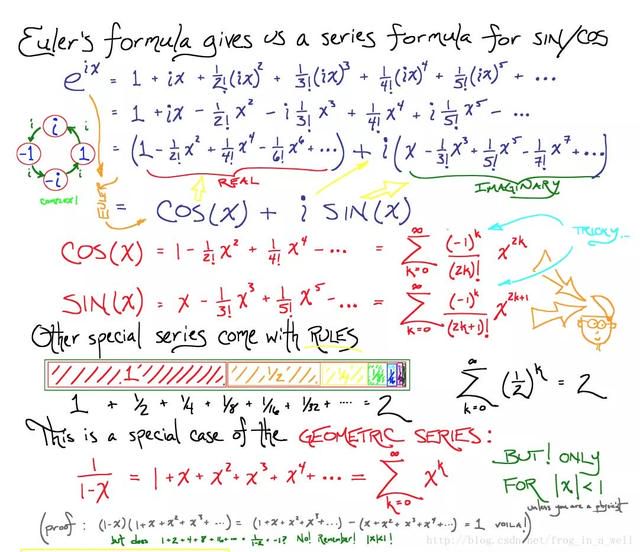 Euler's formula gives us a series formula for SIN/COS
e^{ix} = 1 + ix + 1/2!(ix)² + 1/3!(ix)³ + 1/4!(ix)⁴ + 1/5!(ix)⁵ + ...
= 1 + ix - 1/2! x² - i 1/3! x³ + 1/4! x⁴ + i 1/5! x⁵ - ...
= (1 - 1/2! x² + 1/4! x⁴ - 1/6! x⁶ + ...) + i (x - 1/3! x³ + 1/5! x⁵ - 1/7! x⁷ + ...)
i i i
-1 1
i -i i
COMPLEX!
EULER
REAL IMAGINARY
= COS(x) + i SIN(x)
COS(x) = 1 - 1/2! x² + 1/4! x⁴ - ... = ∑_{k=0}^{∞} (-1)^k/(2k)! x^{2k}
TRICKY...
SIN(x) = x - 1/3! x³ + 1/5! x⁵ - ... = ∑_{k=0}^{∞} (-1)^k/(2k+1)! x^{2k+1}
Other special series come with RULES
1 1/2 1/4 1/8
1 + 1/2 + 1/4 + 1/8 + 1/16 + 1/32 + ... = 2
∑_{k=0}^{∞} (1/2)^k = 2
This is a special case of the GEOMETRIC SERIES:
1/(1-x) = 1 + x + x² + x³ + x⁴ + ... = ∑_{k=0}^{∞} x^k
BUT! ONLY
FOR |x| < 1
unless you are a physicist
(proof: (1-x)(1+x+x²+x³+...) = (1+x+x²+x³...) - (x+x²+x³+x⁴+...) = 1 voila!)
but does 1+2+4+8+16+... = 1/(1-2) = -1? No! Remember! |x|<1
http://blog.csdn.net/frog_in_a_well